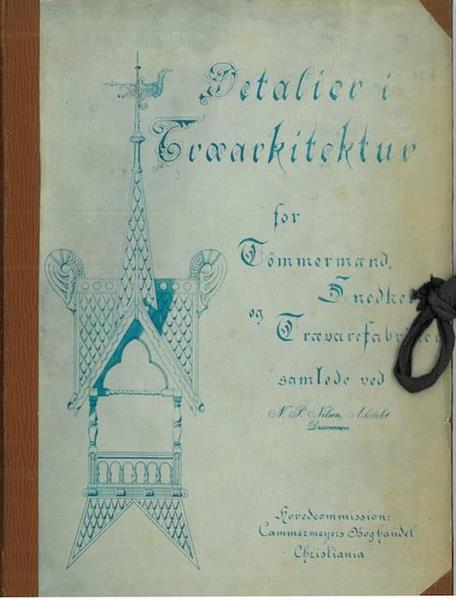 Detalier i
Træarkitektur
for
Tömmermænd,
Snedke
og Trævarefabri
samlede ved
N. S. Nilsen, Arkitekt
Drammen
Hovedcommission:
Cammermeyers Boghandel
Christiania